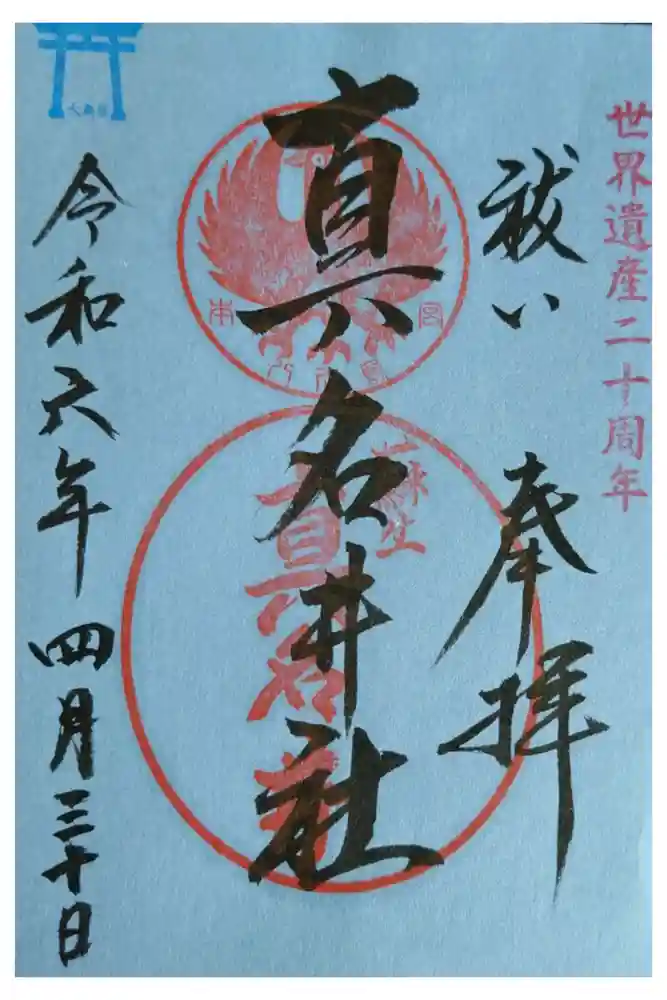 世界遺産二十周年
祓い
奉拝
真名井社
令和六年四月三十日